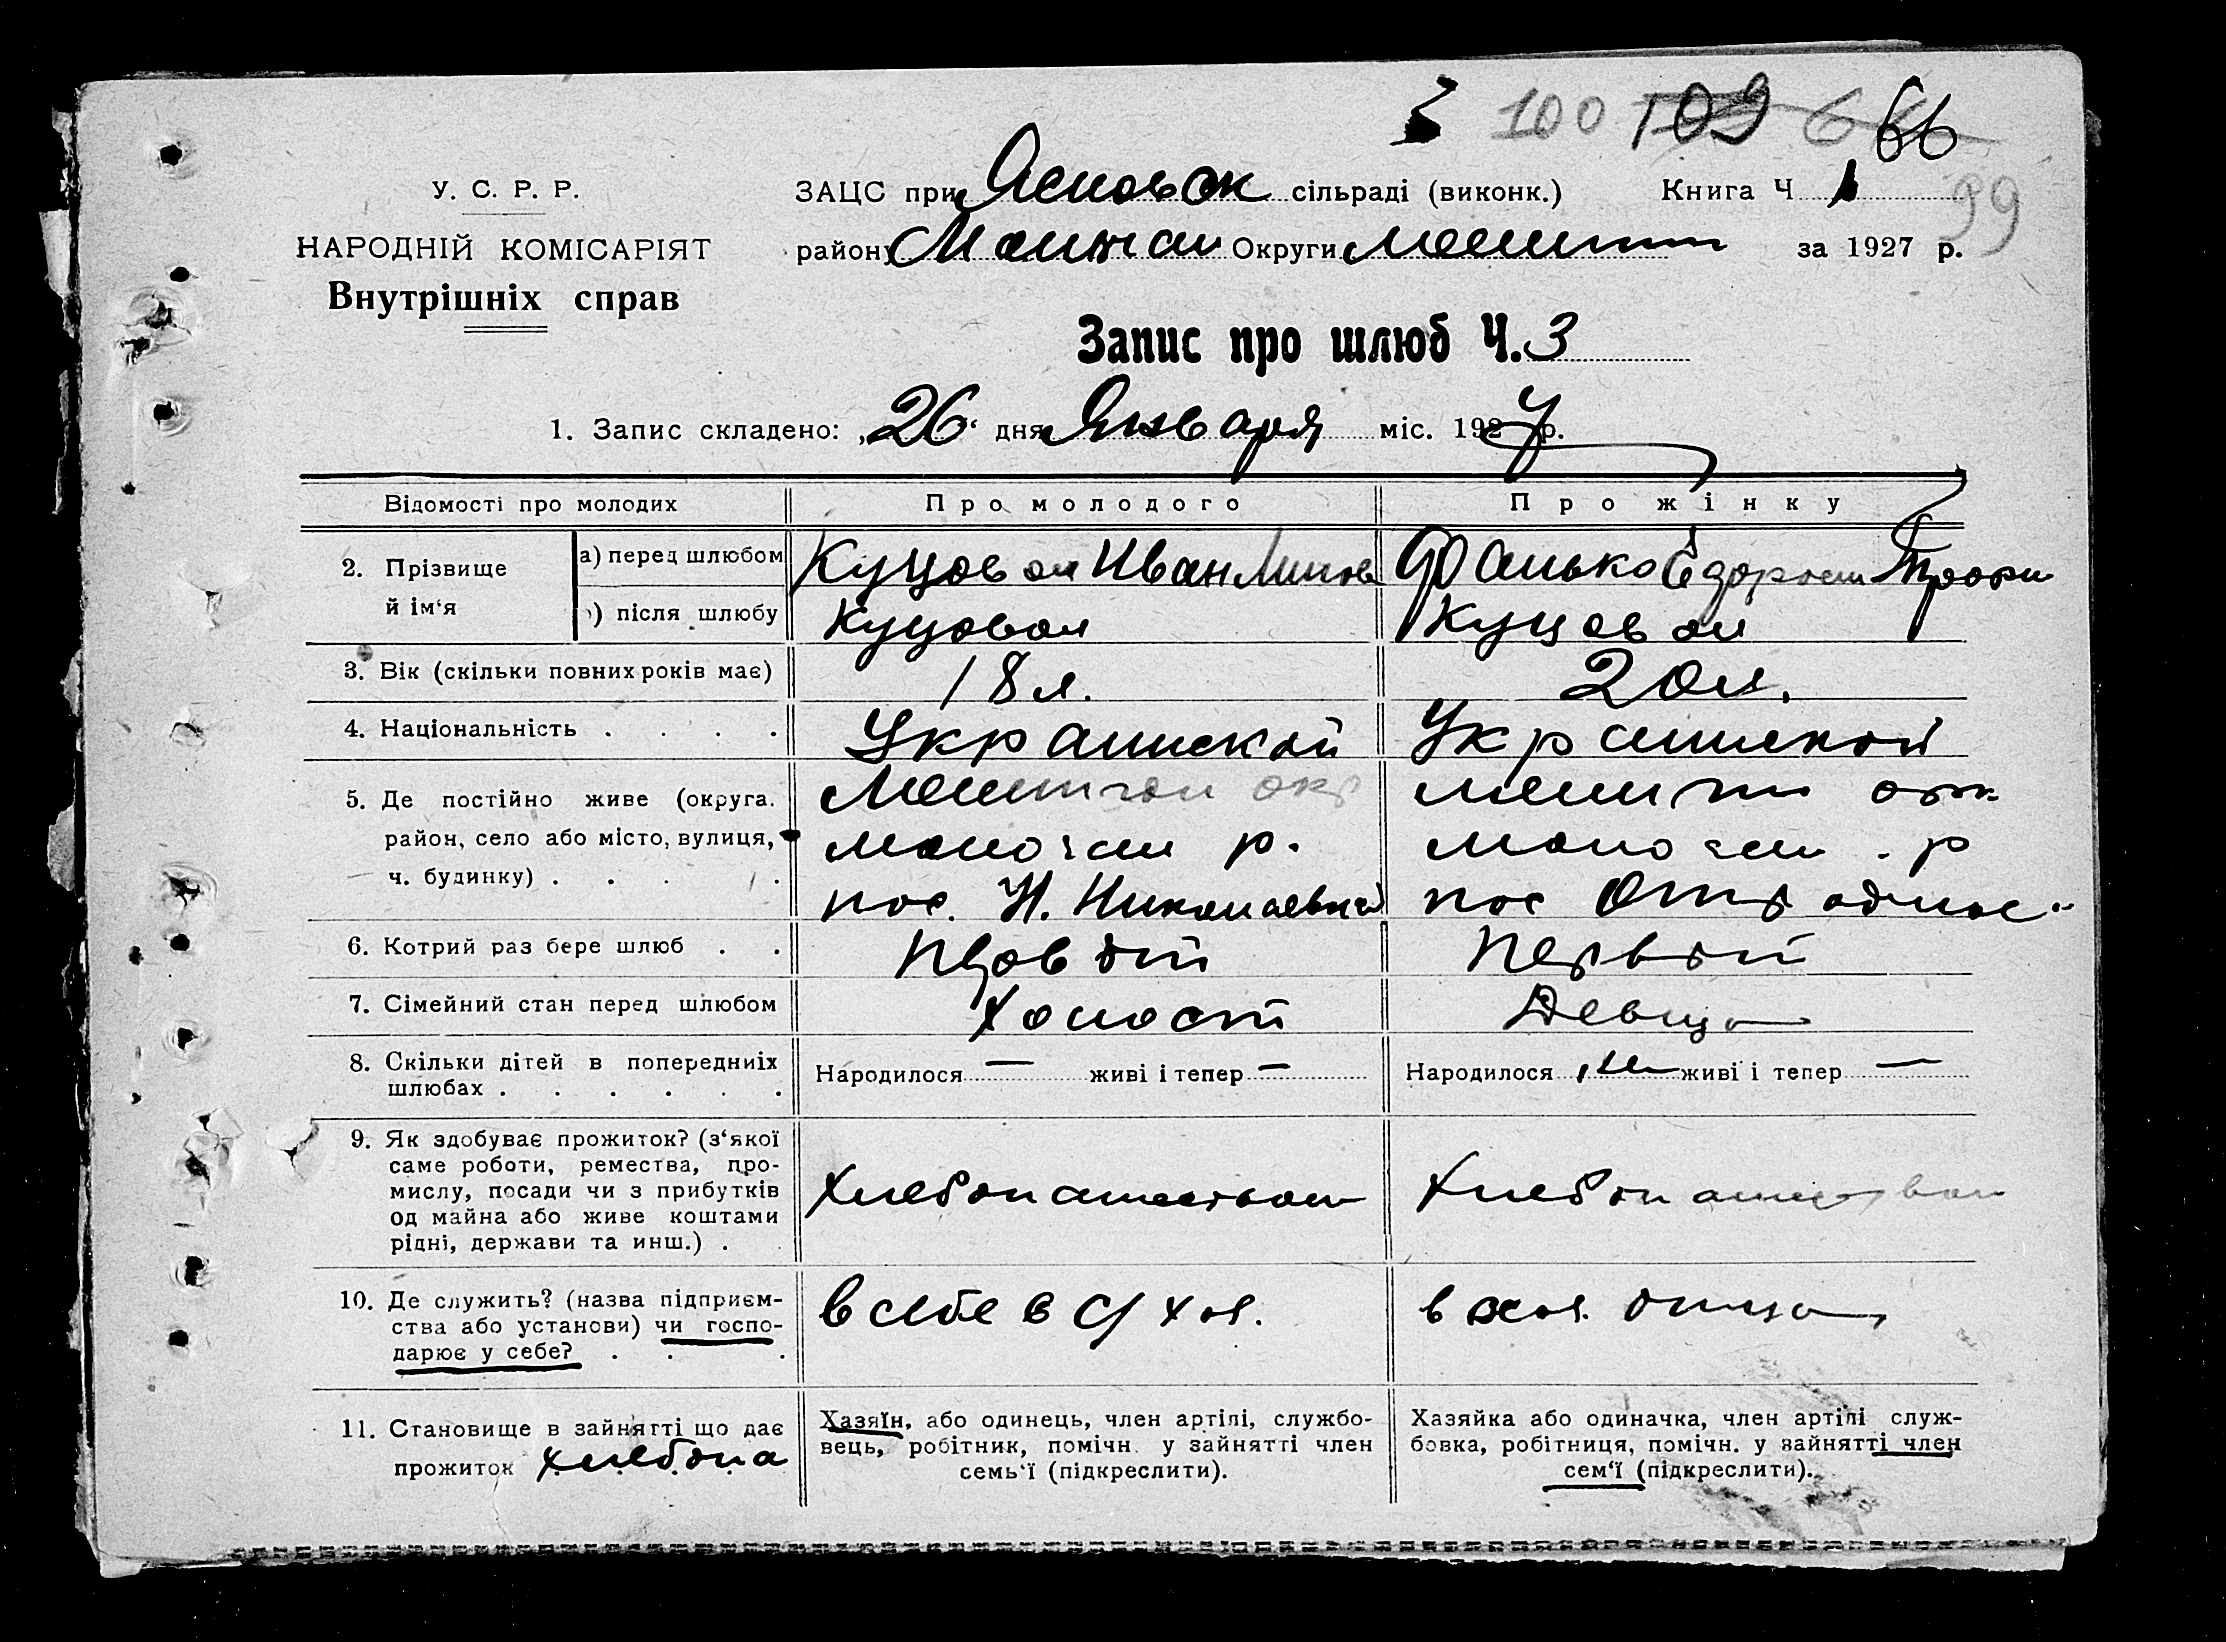 100 109 66
У. С. Р. Р.
ЗАЦС при Ясновск сільраді (виконк.) Книга Ч. 1
99
НАРОДНІЙ КОМІСАРІЯТ
району Округи за 1927 р.
Внутрішніх справ
Запис про шлюб Ч. 3
1. Запис складено: „26“ дня Января міс. 1927 р.
Відомості про молодих Про молодого Про жінку
2. Прізвище й ім‘я
а) перед шлюбом Иван
) після шлюбу
3. Вік (скільки повних років має) 18 л. 20 л.
4. Національність . . . . Украинской Украинской
5. Де постійно живе (округа.
район, село або місто, вулиця, р. р
ч. будинку) . . . . пос. Н. Николаевка пос
6. Котрий раз бере шлюб . . Первый
7. Сімейний стан перед шлюбом Холост Девица
8. Скільки дітей в попередниіх
шлюбах . . . . . .
Народилося — живі і тепер — Народилося живі і тепер —
9. Як здобуває прожиток? (з‘якої
саме роботи, ремества, про-
мислу, посади чи з прибутків
од майна або живе коштами
рідні, держави та инш.) .
Хлебопашеством Хлебопашеством
10. Де служить? (назва підприєм-
ства або установи) чи госпо-
дарює у себе? . . .
в себе в с/хоз. в хоз. отца
11. Становище в зайнятті що дає
прожиток хлебопа
Хазяїн, або одинець, член артілі, службо-
вець, робітник, помічн. у зайнятті член
семь‘ї (підкреслити).
Хазяйка або одиначка, член артілі служ-
бовка, робітниця, помічн. у зайнятті член
сем‘ї (підкреслити).